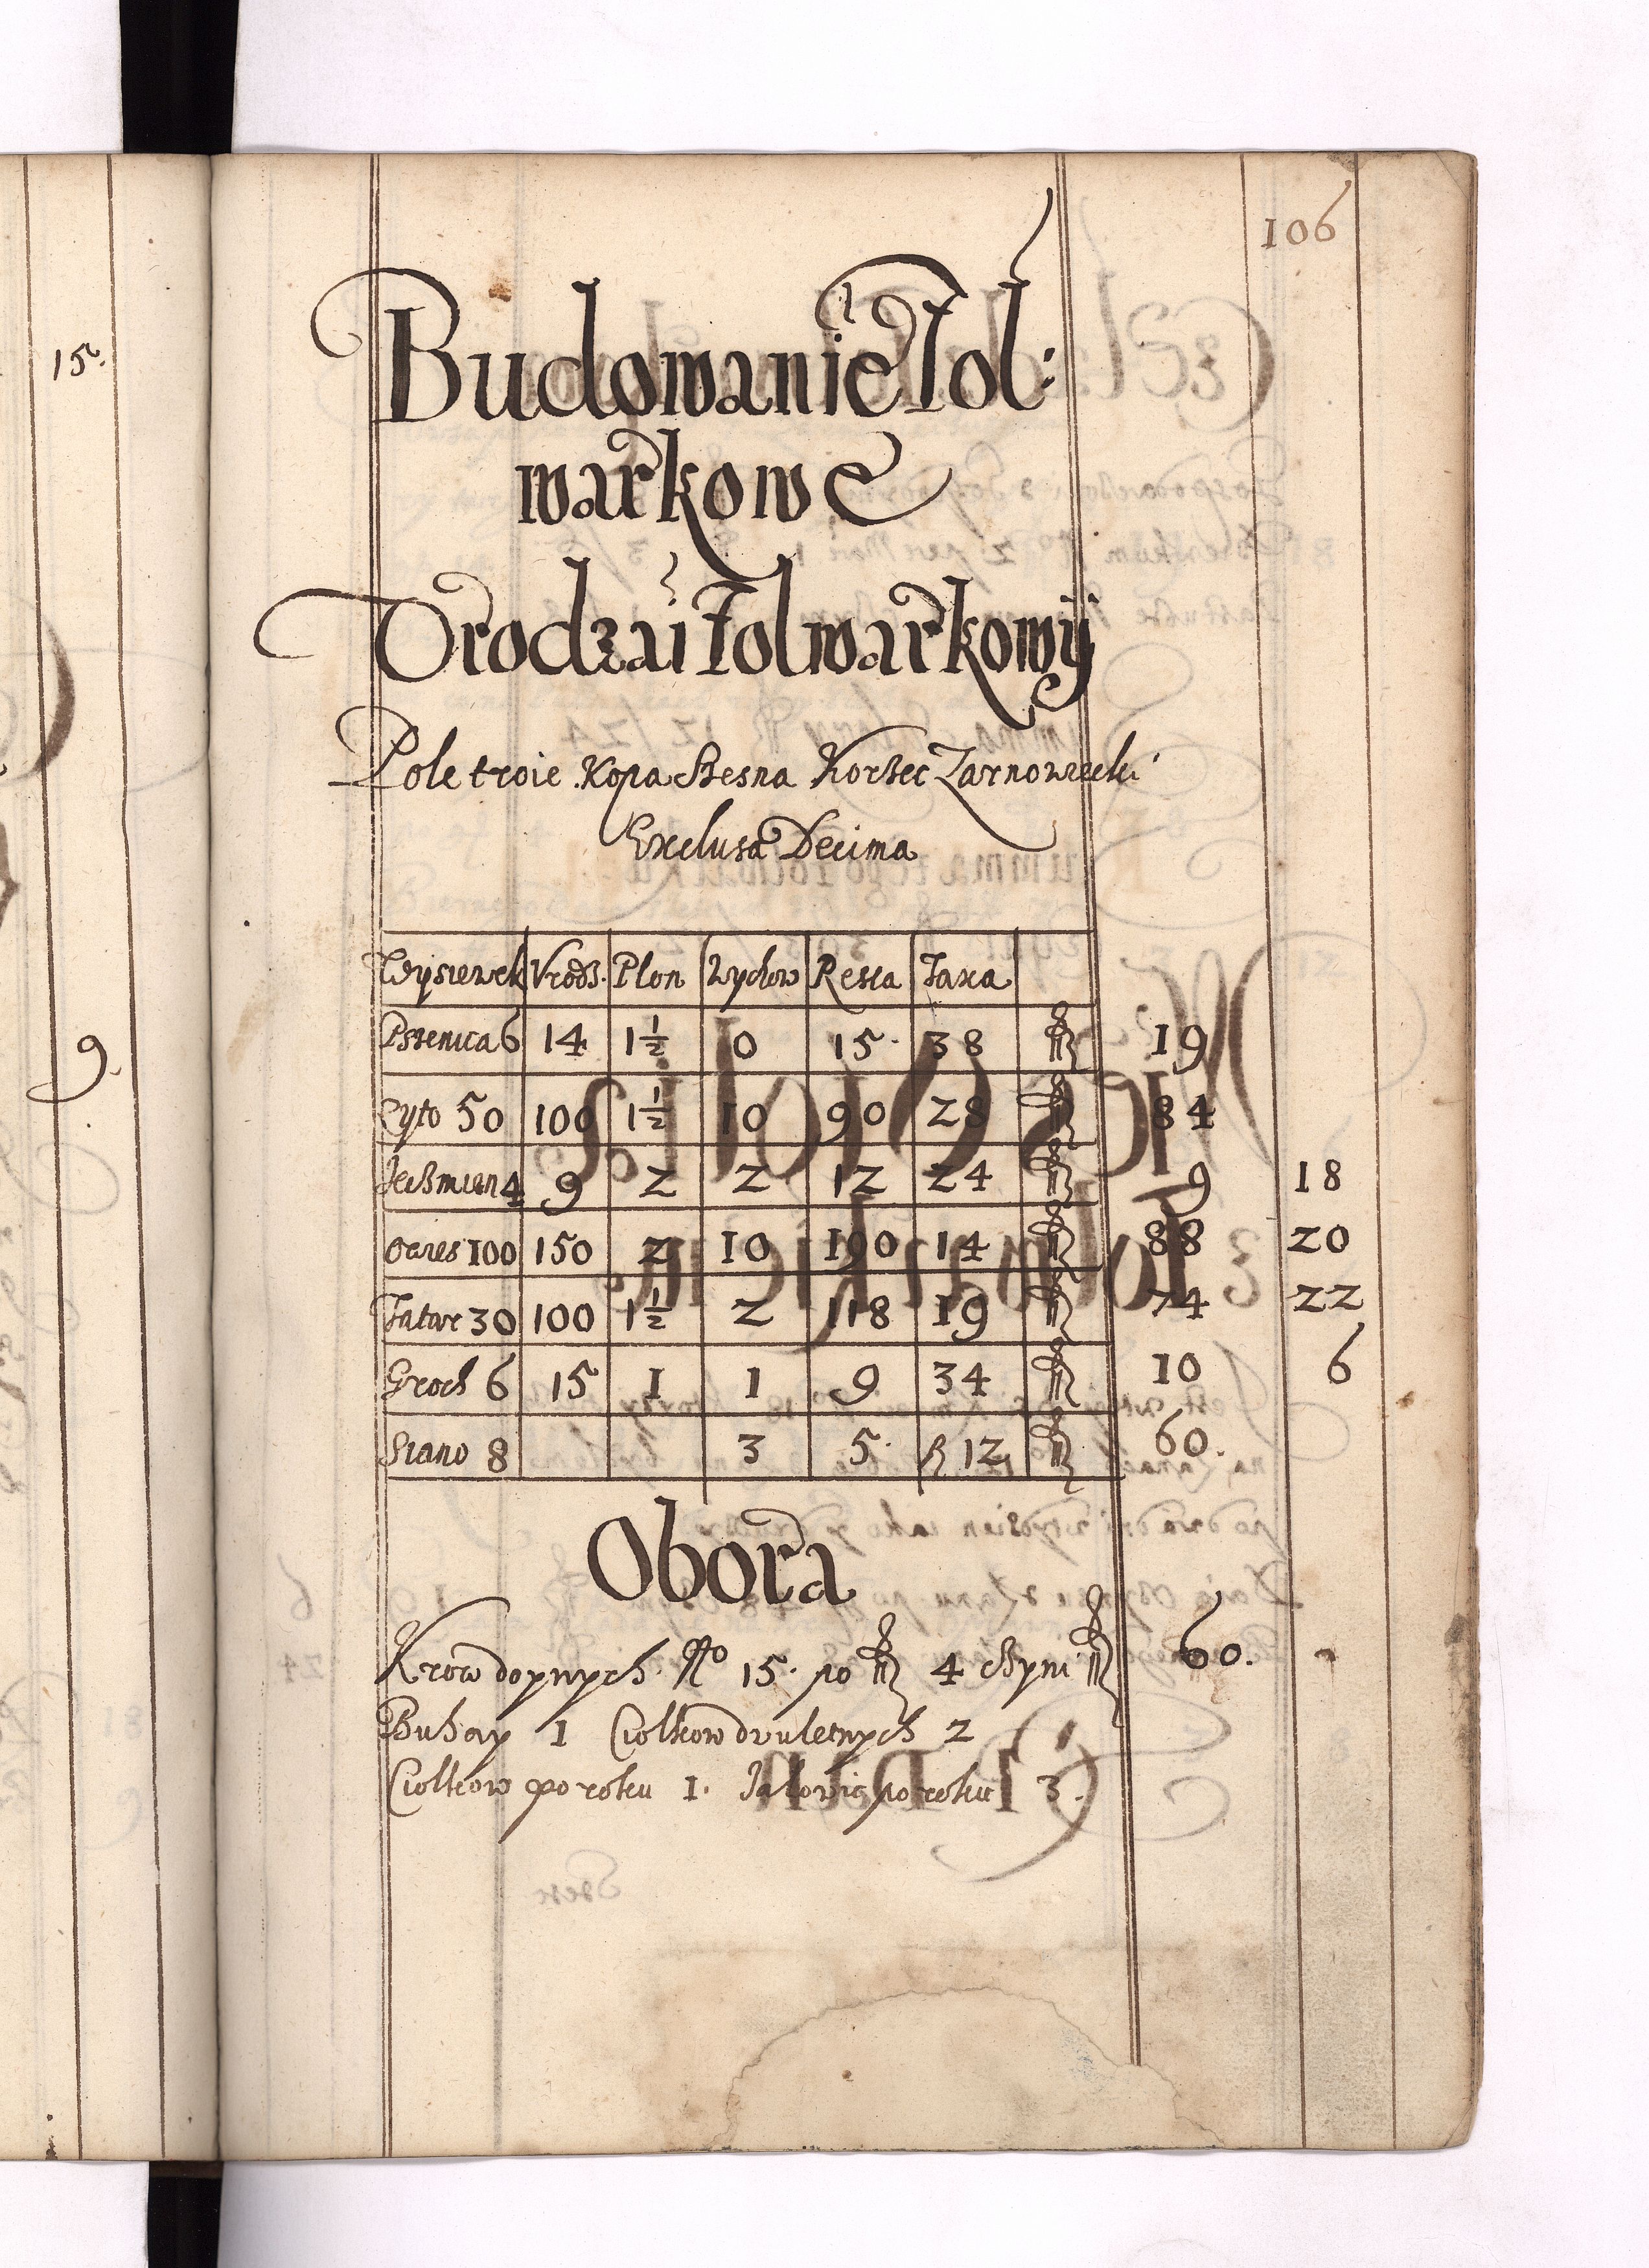 106
15.
9.
Budowanie Fol:
warkowe
Vrodzai Folwarkowÿ
Pole troie Kopa Stesna Korzec Zarnowiecki
Exclusa Decima
Wysiewek Vrodz. Plon Wychow Resta Taxa
Pszenica 6 14 1½ 0 15. 38 19
Zyto 50 100 1½ 10 90 28 84
Jeczmien 4 9 2 2 12 24 9 18
Owies 100 150 2 10 190 14 88 20
Tatar 30 100 1½ 2 118 19 74 22
Groch 6 15 1 1 9 34 10 6
Siano 8 3 5. 12 60.
Obora
Krow doynych No 15. po fl 4 czyni fl 60. -
Buhay 1 Ciołkow dwuletnych 2
Ciołkow po roku 1. Jałowic po roku 3.